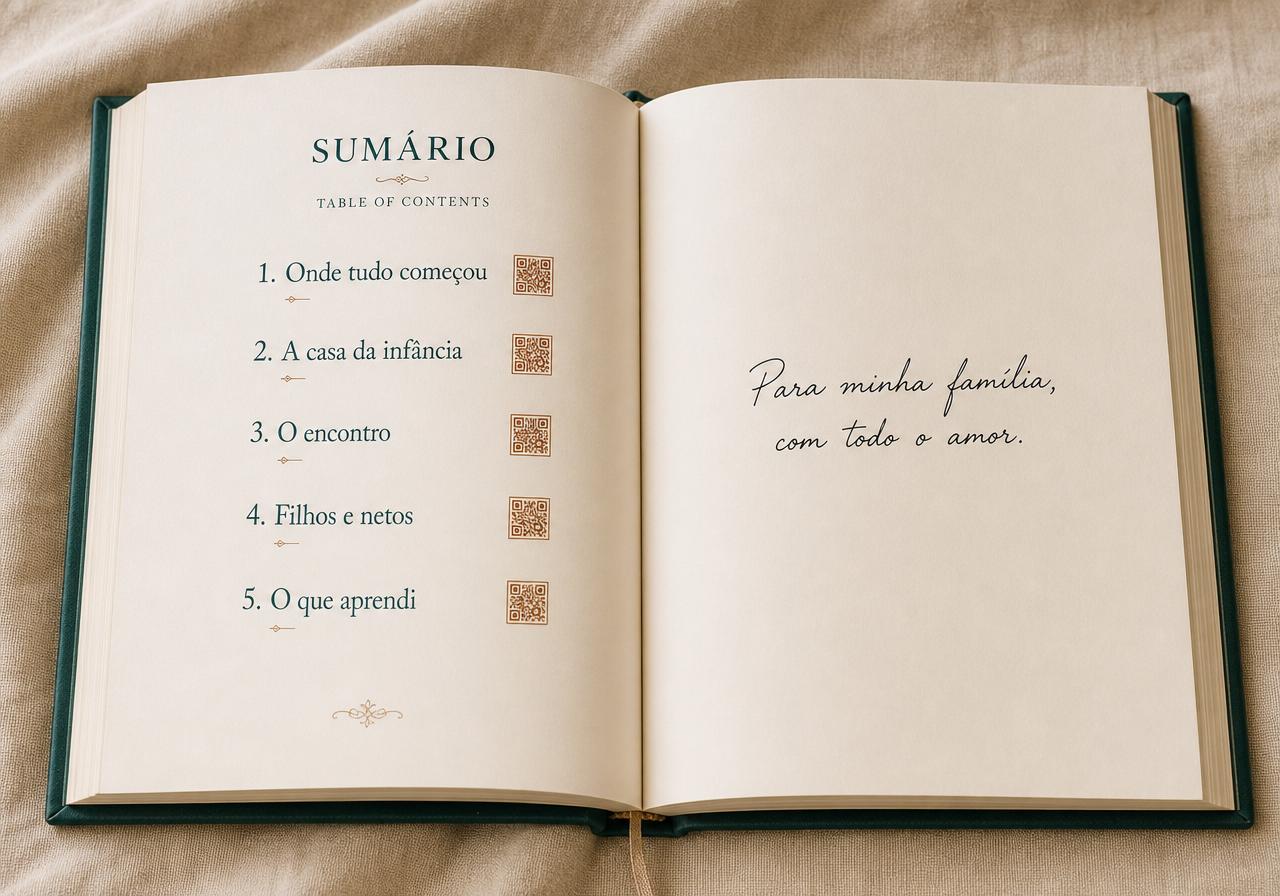 SUMÁRIO
TABLE OF CONTENTS
1. Onde tudo começou
2. A casa da infância
3. O encontro
4. Filhos e netos
5. O que aprendi
Para minha família,
com todo o amor.